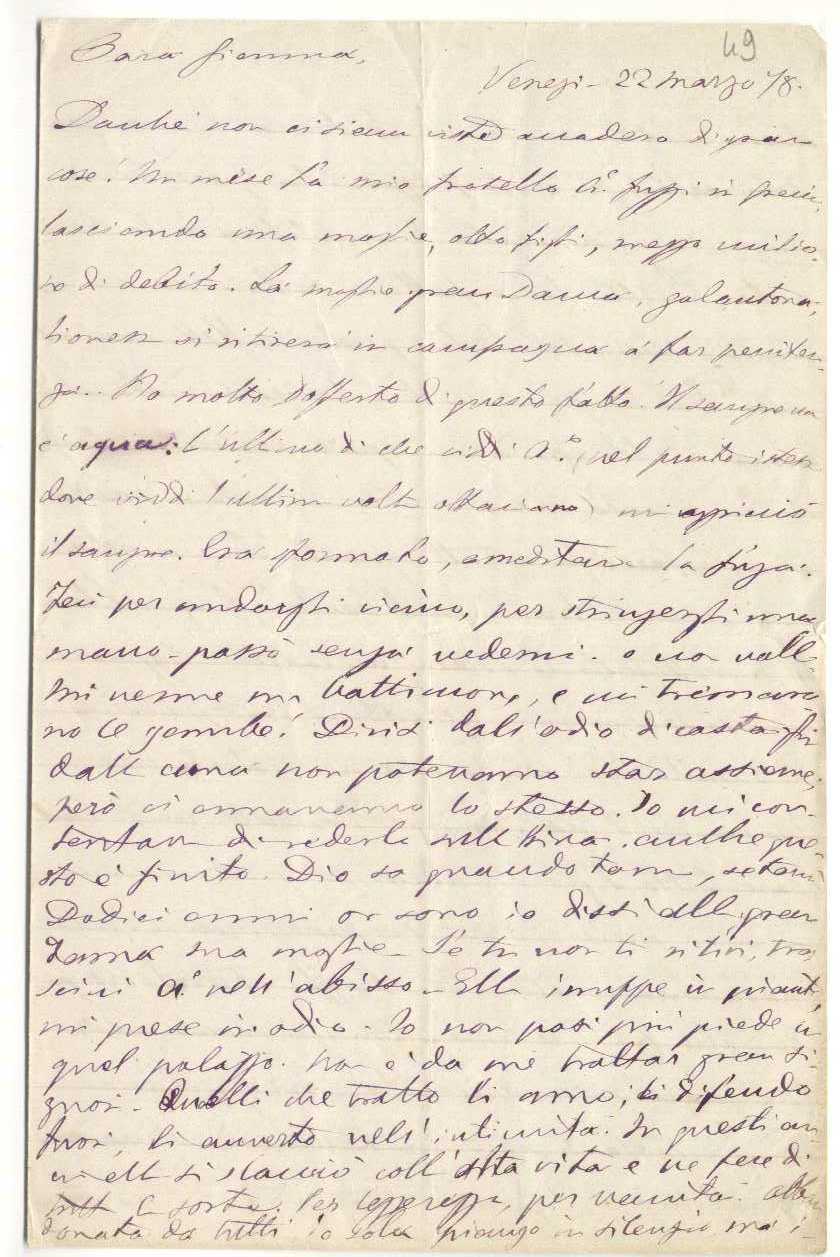 49
Cara Giemma,
Venezi- 22 marzo 78.
Dacchè non ci siam viste accadero di gran
cose! Un mese fà mio fratello A.º fuggì in
lasciando una moglie, otto figli, mezzo milio-
no di debito. La moglie gran Dama,
si ritirerà in campagna á far peniten-
za.. Ho molto sofferto di questo fatto. Il sangue non
é aqua: L'ultimo dí che vidi A.º (nel punto istess
dove viddi l'ultima volta Ottaviano) mi agghiacciò
il sangue. Era sformato, e meditava la fuga.
Feci per andargli vicino, per stringergli una
mano - passò senza vedermi. o non volle
Mi venne un batticuore, e mi tremava
no le gambe! Divisi dall'odio di casta fin
dalla cuna non potevamo star assieme,
però ci amavamo lo stesso. Io mi con-
tentava di vederlo sulla Riva. anche que-
sto è finito. Dio sa quando torna, se torni
Dodici anni or sono io dissi alla gran
Dama sua moglie - Se tu non ti ritiri, tra
scini A.º nell'abisso - Ella iruppe in pianti
mi prese in odio. Io non posi più piede in
quel palazzo. Non è da me trattar gran si-
gnori. Quelli che tratto li amo, li difendo
fuori, li avverto nell'intimità. In questi an
ni ella si slanciò coll'alta vita e ne fece di
tutte le sorta. Per leggerezza, per vanità. abban
donata da tutti io sola piango in silenzio ma i-